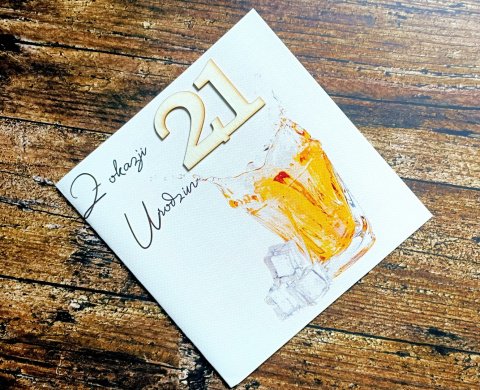 21
Z okazji
Urodzin